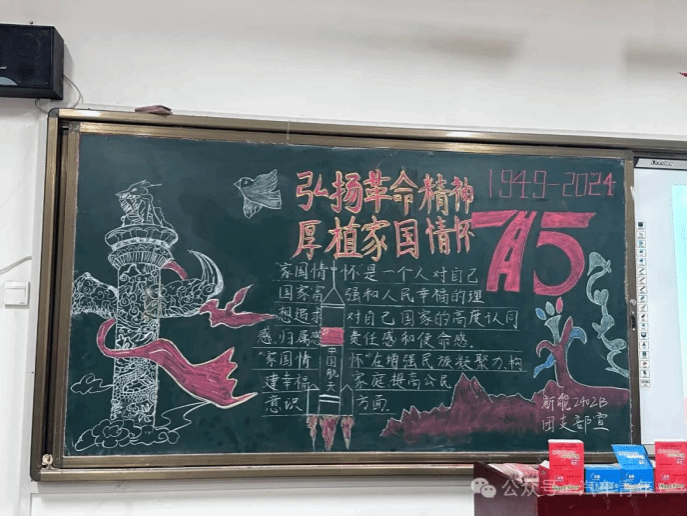 弘扬革命精神
厚植家国情怀
1949-2024
75
家国情怀是一个人对自己
国家富强和人民幸福的理
想追求对自己国家的高度认同
感.归属感责任感和使命感.
"家国情怀"在增强民族凝聚力.构
建幸福家庭提高公民
意识方面.
中国航天
新能2402B
团支部宣
公众号
汽车青年